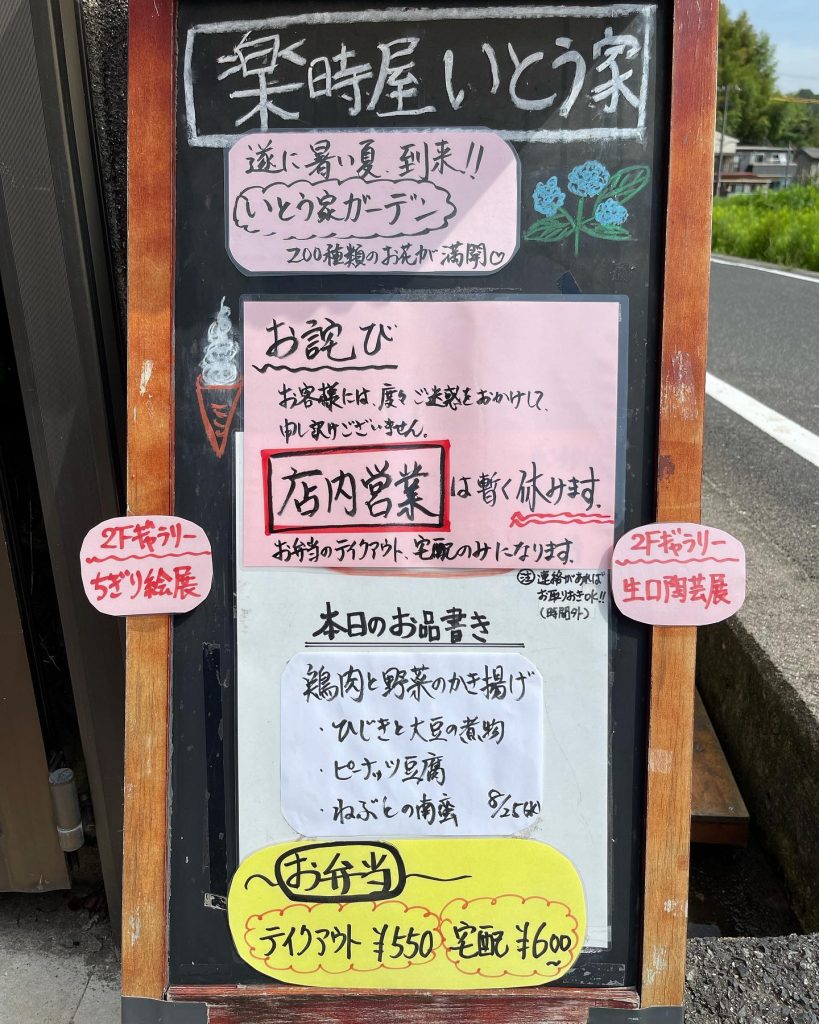 楽時屋いとう家
遂に暑い夏、到来!!
いとう家ガーデン
200種類のお花が満開♡
お詫び
お客様には、度々ご迷惑をおかけして、
申し訳ございません。
店内営業は暫く休みます。
お弁当のテイクアウト、宅配のみになります。
注 連絡があれば
お取りおきOK!!
(時間外)
2Fギャラリー
ちぎり絵展
2Fギャラリー
生口陶芸展
本日のお品書き
鶏肉と野菜のかき揚げ
・ひじきと大豆の煮物
・ピーナッツ豆腐
・ねぶとの南蛮 8/25(水)
お弁当
テイクアウト ¥550
宅配 ¥600